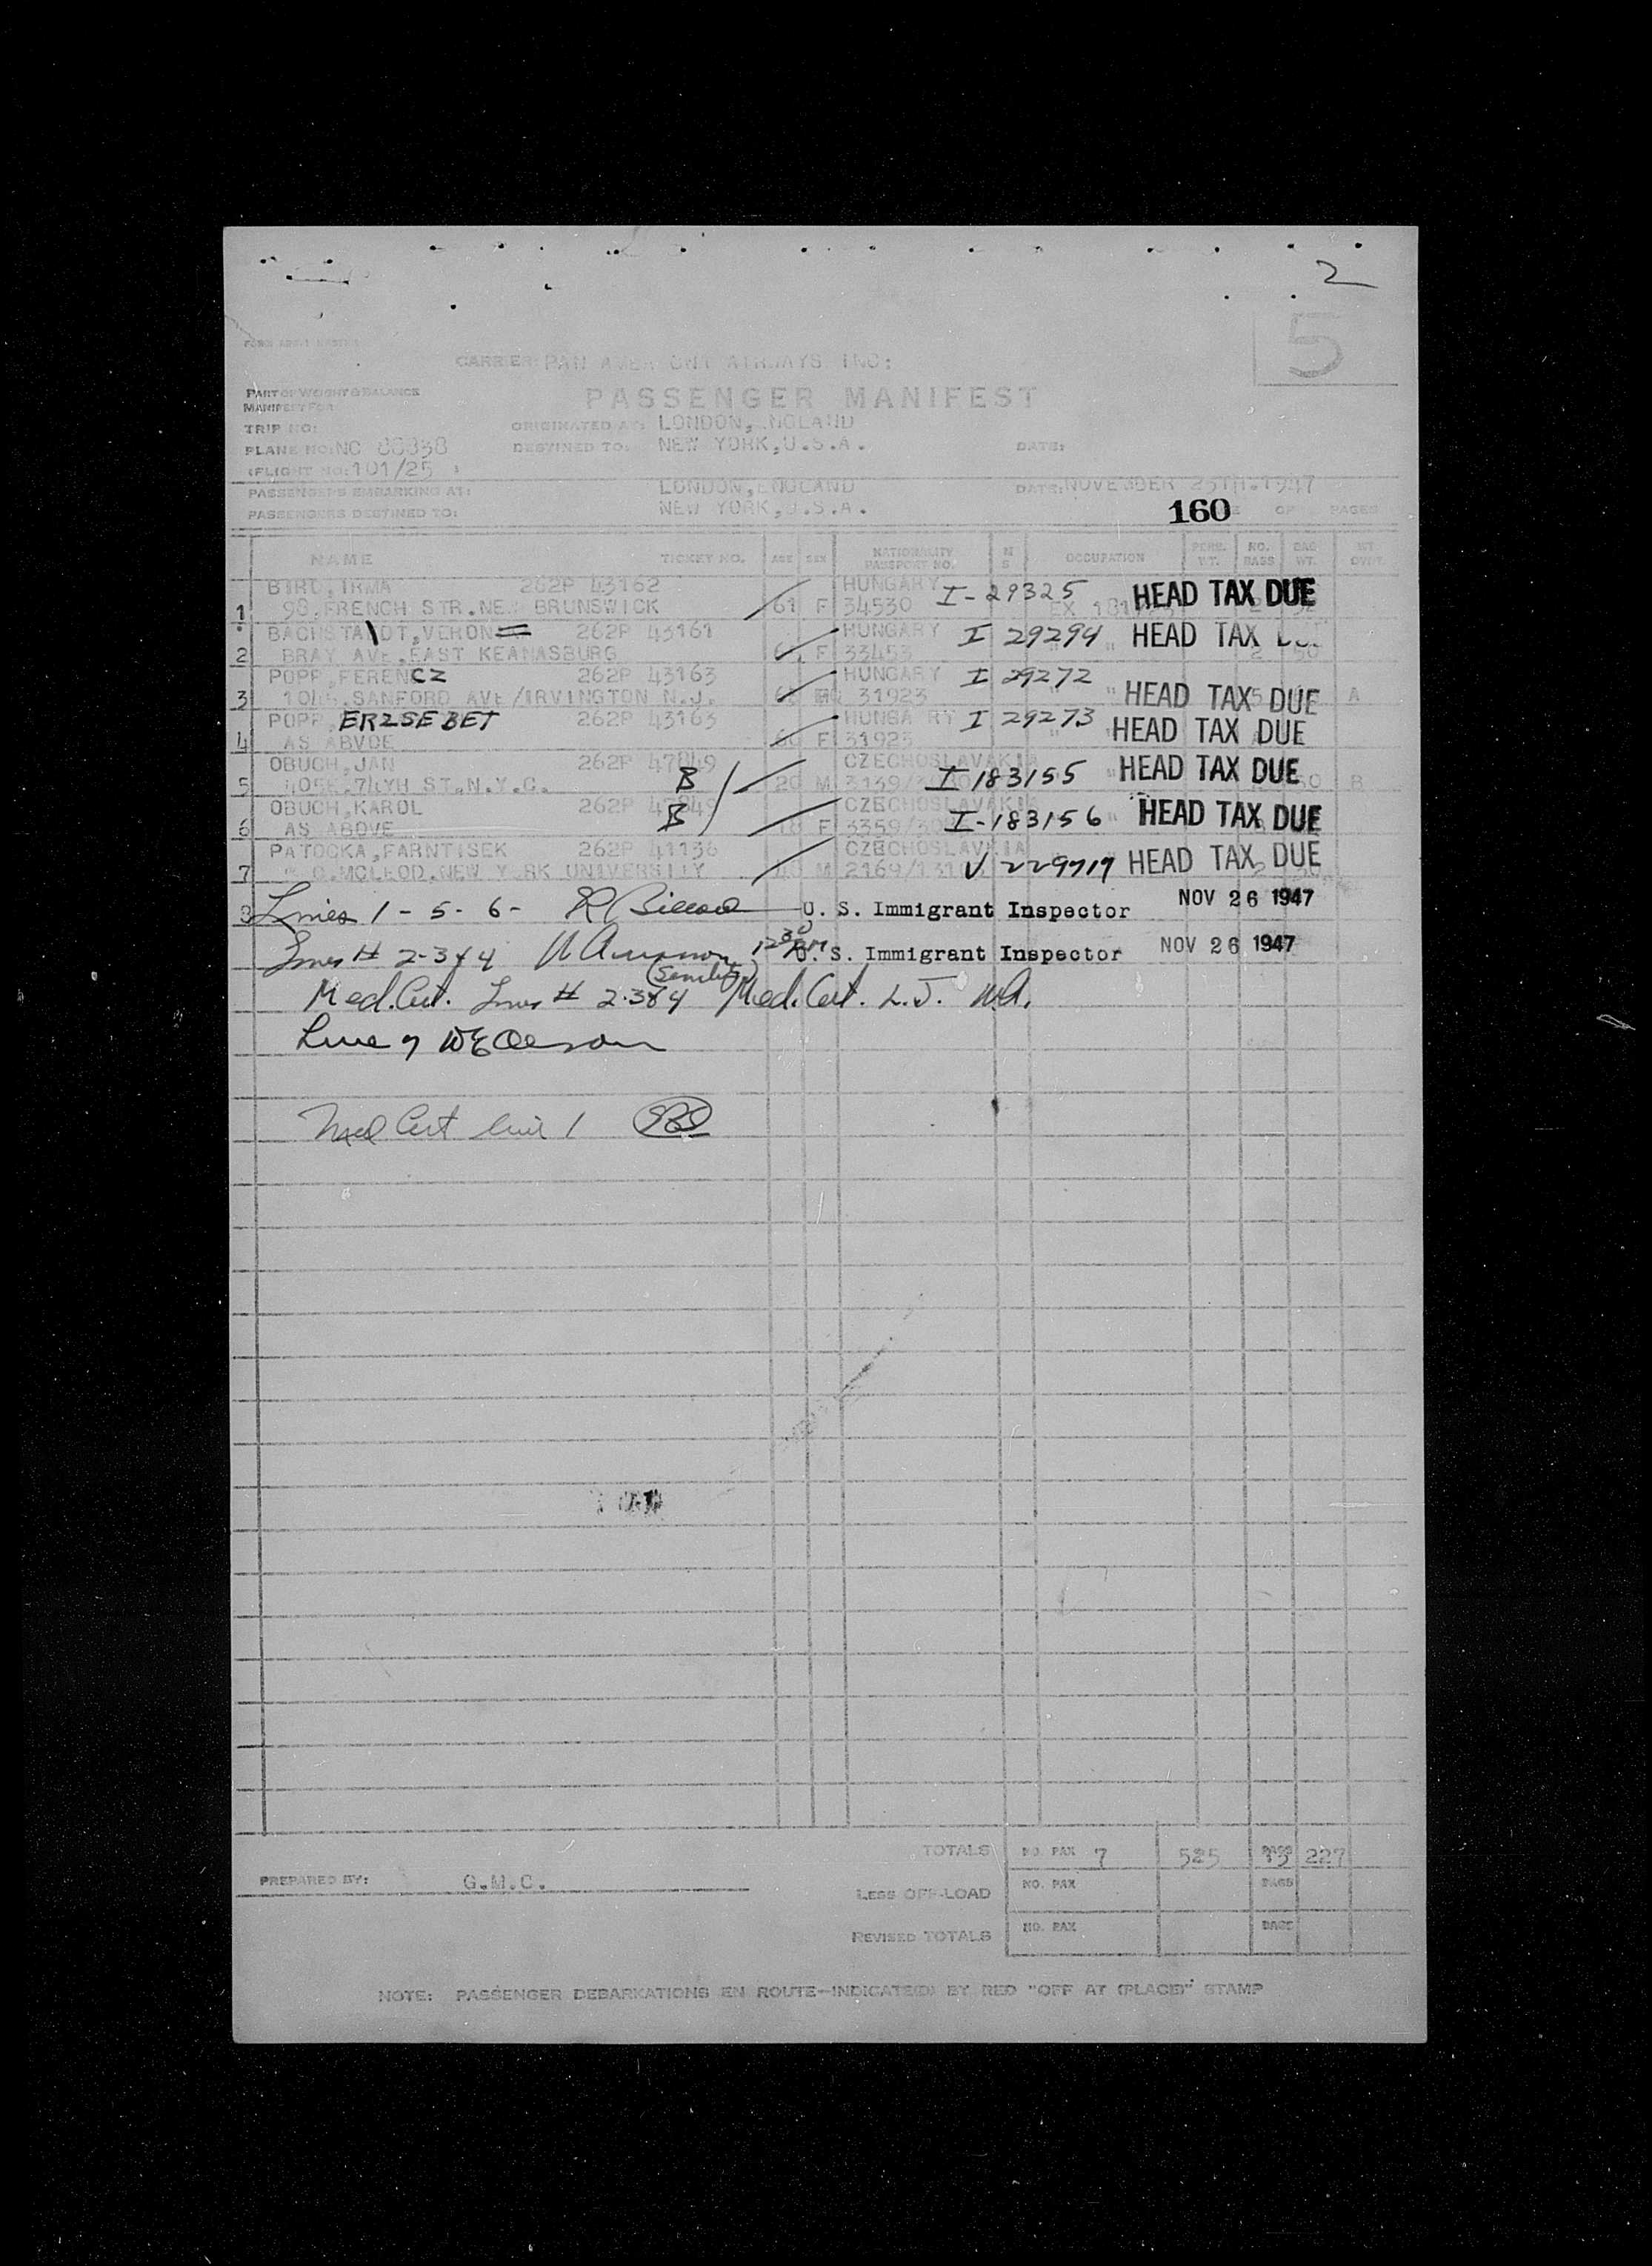 2
5
CARRIER: PAN AMERICNT AIRWAYS INC:
PART OF WEIGHT & BALANCE
MANIFEST FOR
PASSENGER MANIFEST
TRIP NO: ORIGINATED AT: LONDON, ENGLAND
PLANE NO: NC 88838 DESTINED TO: NEW YORK, U.S.A. DATE:
(FLIGHT NO: 101/25 )
PASSENGERS EMBARKING AT: LONDON, ENGLAND DATE: NOVEMBER 25TH.1947
PASSENGERS DESTINED TO: NEW YORK, U.S.A. 160 OF PAGES
NAME TICKET NO. AGE SEX NATIONALITY PASSPORT NO. M S OCCUPATION PERS. WT. NO. BAGS BAG WT.
BIRO, IRMA 262P 43162 HUNGARY I-29325 HEAD TAX DUE
1 98, FRENCH STR. NEW BRUNSWICK 61 F 34530
BACHSTADT, VERON 262P 43161 HUNGARY I 29294 HEAD TAX
2 BRAY AVE, EAST KEANASBURG F 33453
POPP, FERENCZ 262P 43163 HUNGARY I 29272
3 SANFORD AVE/IRVINGTON N.J. 31923 HEAD TAX DUE A
POPP, ERZSEBET 262P 43163 I 29273 HEAD TAX DUE
4 AS ABVOE F 31923
OBUCH, JAN 262P 47849 CZECHOSLAVAKIA HEAD TAX DUE
5 405E. 74YH ST. N.Y.C. B 20 M I-183155 B
OBUCH, KAROL 262P CZECHOSLAVAKIA HEAD TAX DUE
6 AS ABOVE B 18 F I-183156
PATOCKA, FARNTISEK 262P 41136 CZECHOSLAVAKIA HEAD TAX DUE
7 MCLEOD, NEW YORK UNIVERSITY 40 M V 229717
8 Lines 1-5-6- U. S. Immigrant Inspector NOV 26 1947
Lines # 2-3 & 4 U. S. Immigrant Inspector NOV 26 1947
Med. Cert. Lines # 2-3 & 4 (Senility) Med. Cert. L.J.
Line 7
Med Cert line 1
TOTALS NO. PAX 7 525 BAGS 13 227
PREPARED BY: G.M.C.
LESS OFF-LOAD NO. PAX BAGS
REVISED TOTALS NO. PAX BAGS
NOTE: PASSENGER DEBARKATIONS EN ROUTE—INDICATE(D) BY RED "OFF AT (PLACE)" STAMP